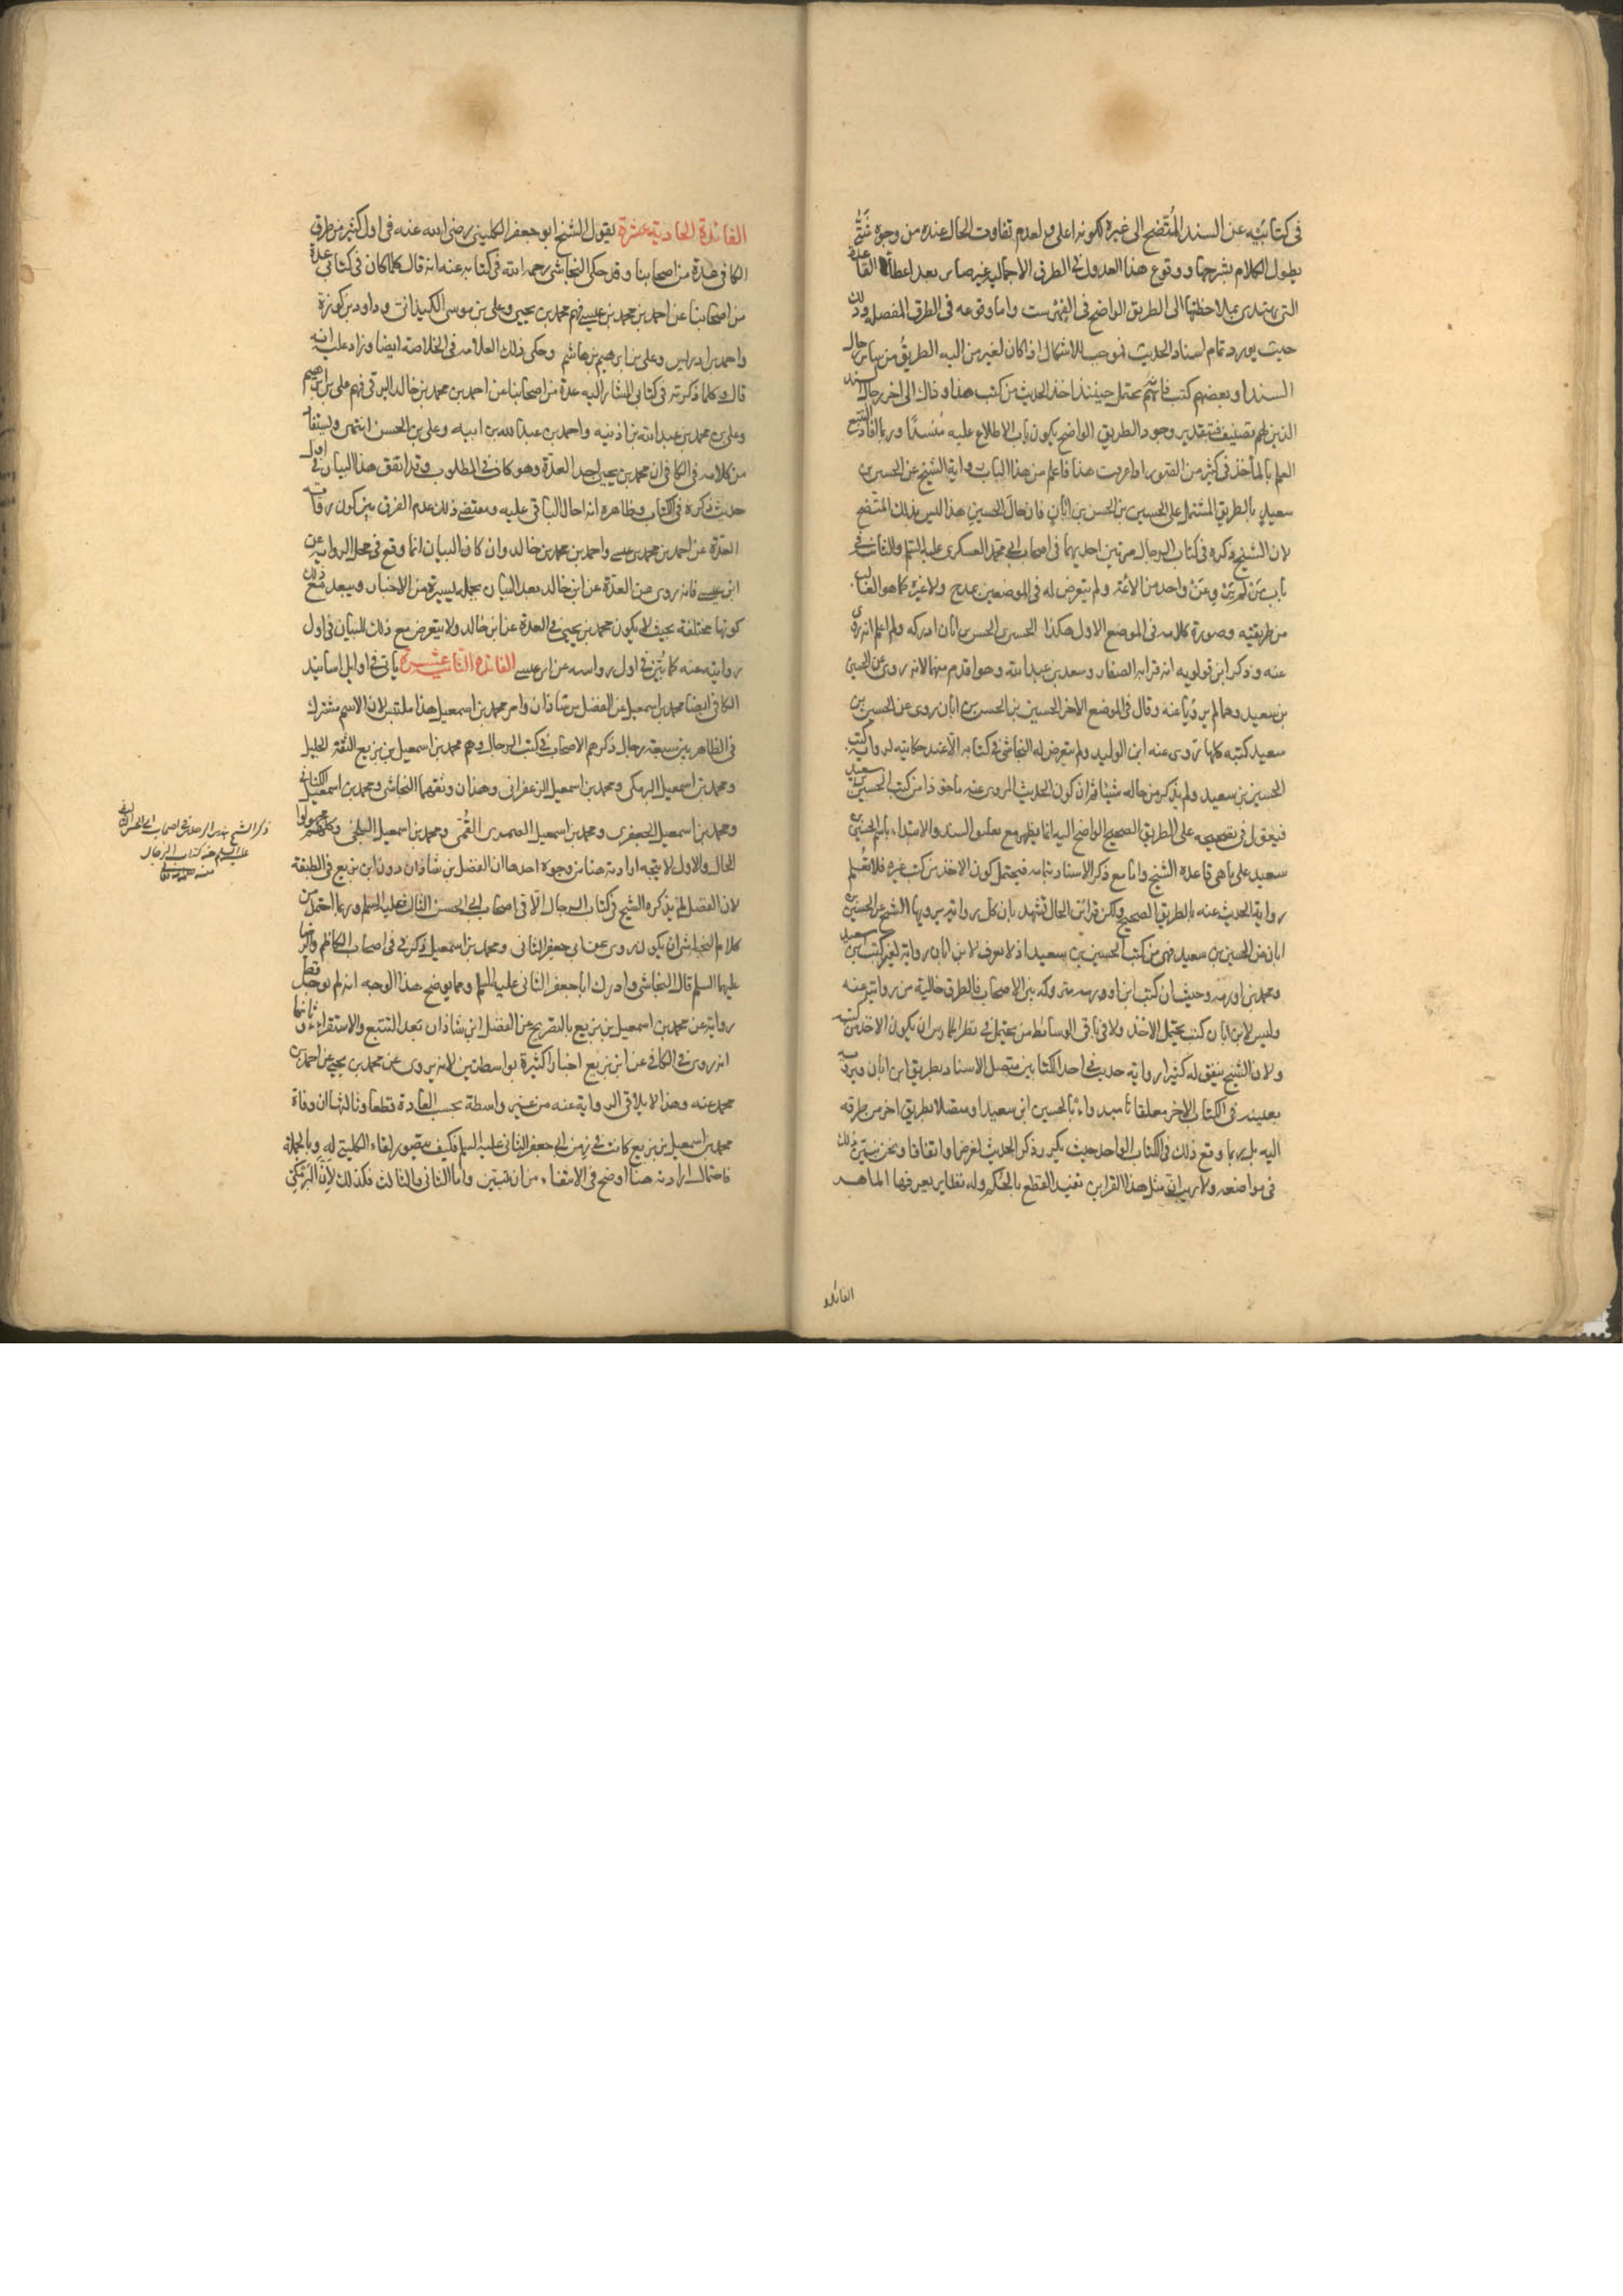 في كتابيه عن السند المتضح الى غيره لكونه اعلى او لعدم تفاوت الحال عنده من وجوه شتى
يطول الكلام بشرحها ووقوع هذا العدول في الطرق الاجمالية غير ضاير بعد اعطاء القاعدة
التي يهتدى بملاحظتها الى الطريق الواضح في الفهرست واما وقوعه في الطرق المفصلة وذلك
حيث يورد تمام اسناد الحديث فموجب للاشكال اذا كان لغير من اليه الطريق من ساير رجال
السند او بعضهم كتب فانه يحتمل حينئذ اخذ الحديث من كتب هذا وذاك الى اخر رجال السند
الذين لهم تصنيف فبتقدير وجود الطريق الواضح يكون باب الاطلاع عليه منسدا وربما افاد التتبع
العلم بالمأخذ في كثير من الصور اذا عرفت هذا فاعلم من هذا الباب رواية الشيخ عن الحسين بن
سعيد بالطريق المشتمل على الحسين بن الحسن بن ابان فان حال الحسين هذا ليس بذلك المتضح
لان الشيخ ذكره في كتاب الرجال مرتين احديهما في اصحاب ابي محمد العسكري عليه السلم والثانية في
باب من لم يرو عن واحد من الائمة ولم يتعرض له في الموضعين بمدح ولا غيره كما هو الغالب
من طريقته وصورة كلامه في الموضع الاول هكذا الحسين بن الحسن بن ابان ادركه ولم اعلم انه روى
عنه وذكر ابن قولويه انه قرابه الصفار وسعد بن عبد الله وهو اقدم منهما لانه روى عن الحسين
بن سعيد وهما لم يرويا عنه وقال في الموضع الاخر الحسين بن الحسن بن ابان روى عن الحسين بن
سعيد كتبه كلها روى عنه ابن الوليد ولم يتعرض له النجاشي في كتابه الا عند حكايته لرواية كتب
الحسين بن سعيد ولم يذكر من حاله شيئا ثم ان كون الحديث المروي عنه ماخوذا من كتب الحسين بن سعيد
فيعول في تصحيحه على الطريق الصحيح الواضح اليه انما يظهر مع تعليق السند والابتداء باسم الحسين بن
سعيد على ما هي قاعدة الشيخ واما مع ذكر الاسناد بتمامه فيحتمل كون الاخذ من كتب غيره فلا يعلم
رواية الحديث عنه بالطريق الصحيح ولكن قرائن الحال تشهد بان كل رواية يرويها الشيخ عن الحسين بن
ابان عن الحسين بن سعيد فهي من كتب الحسين بن سعيد اذ لا يعرف لابن ابان رواية لغير كتب ابن سعيد
ومحمد بن اورمه وحيث ان كتب ابن اورمه متروكه بين الاصحاب فالطرق خالية من روايته عنه
وليس لابن ابان كتب يحتمل الاخذ ولا في باقي الوسائط من يحتمل في نظر الممارس ان يكون الاخذ من كتبه
ولان الشيخ يتفق له كثيرا رواية حديث في احد الكتابين متصل الاسناد بطريق ابن ابان ويرويه
بعينه في الكتاب الاخر معلقا بالحسين ابن سعيد او متصلا بطريق اخر من طرقه
اليه بل ربما وقع ذلك في الكتاب الواحد حيث يكرر ذكر الحديث لغرض او اتفاقا ونحن نبين ذلك
في مواضعه ولا ريب ان مثل هذا القراين تفيد القطع بالحكم وله نظاير يعرفها الماهر
الفائدة
الفائدة الحادية عشرة يقول الشيخ ابو جعفر الكليني رضي الله عنه في اول كثير من طرق
الكافي عدة من اصحابنا وقد حكى النجاشي رحمه الله في كتابه عنه انه قال كلما كان في كتابي عدة
من اصحابنا عن احمد بن محمد بن عيسى فهم محمد بن يحيى وعلي بن موسى الكميذاني وداود بن كورة
واحمد بن ادريس وعلي بن ابرهيم بن هاشم وحكى ذلك العلامه في الخلاصة ايضا وزاد عليه انه
قال وكلما ذكرته في كتابي المشار اليه عدة من اصحابنا عن احمد بن محمد بن خالد البرقي فهم علي بن ابرهيم
وعلي بن محمد بن عبد الله بن اذينه واحمد بن عبد الله بن ابيه وعلي بن الحسن انتهى ويستفاد
من كلامه في الكافي ان محمد بن يحيى احد العدة وهو كاف في المطلوب وقد اتفق هذا البيان في اول
حديث ذكره في الكتاب وظاهره انه احال الباقي عليه ومقتضى ذلك عدم الفرق بين كون رواية
العدة عن احمد بن محمد بن عيسى واحمد بن محمد بن خالد وان كان البيان انما وقع في محل الرواية عن
ابن عيسى فانه روى عن العدة عن ابن خالد بعد البيان بجملة يسيرة من الاخبار ويبعد مع ذلك
كونها مختلفة بحيث لا يكون محمد بن يحيى في العدة عن ابن خالد ولا يتعرض مع ذلك للبيان في اول
روايته عنه كما بين في اول رواية عن ابن عيسى الفائدة الثانية عشرة ياتي في اوايل اسانيد
الكافي ايضا محمد بن اسمعيل عن الفضل بن شاذان وامر محمد بن اسمعيل هذا ملتبس لان الاسم مشترك
في الظاهر بين سبعة رجال ذكرهم الاصحاب في كتب الرجال وهم محمد بن اسمعيل بن بزيع الثقة الجليل
ومحمد بن اسمعيل البرمكي ومحمد بن اسمعيل الزعفراني وهذان وثقهما النجاشي ومحمد بن اسمعيل الكناني
ومحمد بن اسمعيل الجعفري ومحمد بن اسمعيل الصيمري القمي ومحمد بن اسمعيل البلخي وكلهم مجهولوا
الحال والاول لا يتجه ارادته هنا من وجوه احدها ان الفضل بن شاذان دون ابن بزيع في الطبقة
لان الفضل لم يذكره الشيخ في كتاب الرجال الا في اصحاب ابي الحسن الثالث عليه السلم وربما احتمل من
كلام النجاشي ان يكون روى عن ابي جعفر الثاني ومحمد بن اسمعيل ذكر في اصحاب الكاظم والرضا
عليهما السلم قال النجاشي وادرك ابا جعفر الثاني عليه السلم ومما يوضح هذا الوجه انه لم يوجد قط
رواية عن محمد بن اسمعيل بن بزيع بالتصريح عن الفضل ابن شاذان بعد التتبع والاستقراء وثانيها
انه روى في الكافي عن ابن بزيع اخبارا كثيرة بواسطتين لانه يروي عن محمد بن يحيى عن احمد بن
محمد عنه وهذا لا يلاقي الرواية عنه من غير واسطة بحسب العادة قطعا وثالثها ان وفاة
محمد بن اسمعيل بن بزيع كانت في زمن ابي جعفر الثاني عليه السلم فكيف يتصور لقاء الكليني له وبالجملة
فاحتمال ارادته هنا اوضح في الانتفاء من ان يبين واما الثاني والثالث فكذلك لان البرمكي
ذكر الشيخ هذا الرجل في اصحاب ابي الحسن الثالث
عليه السلم من كتاب الرجال
منه